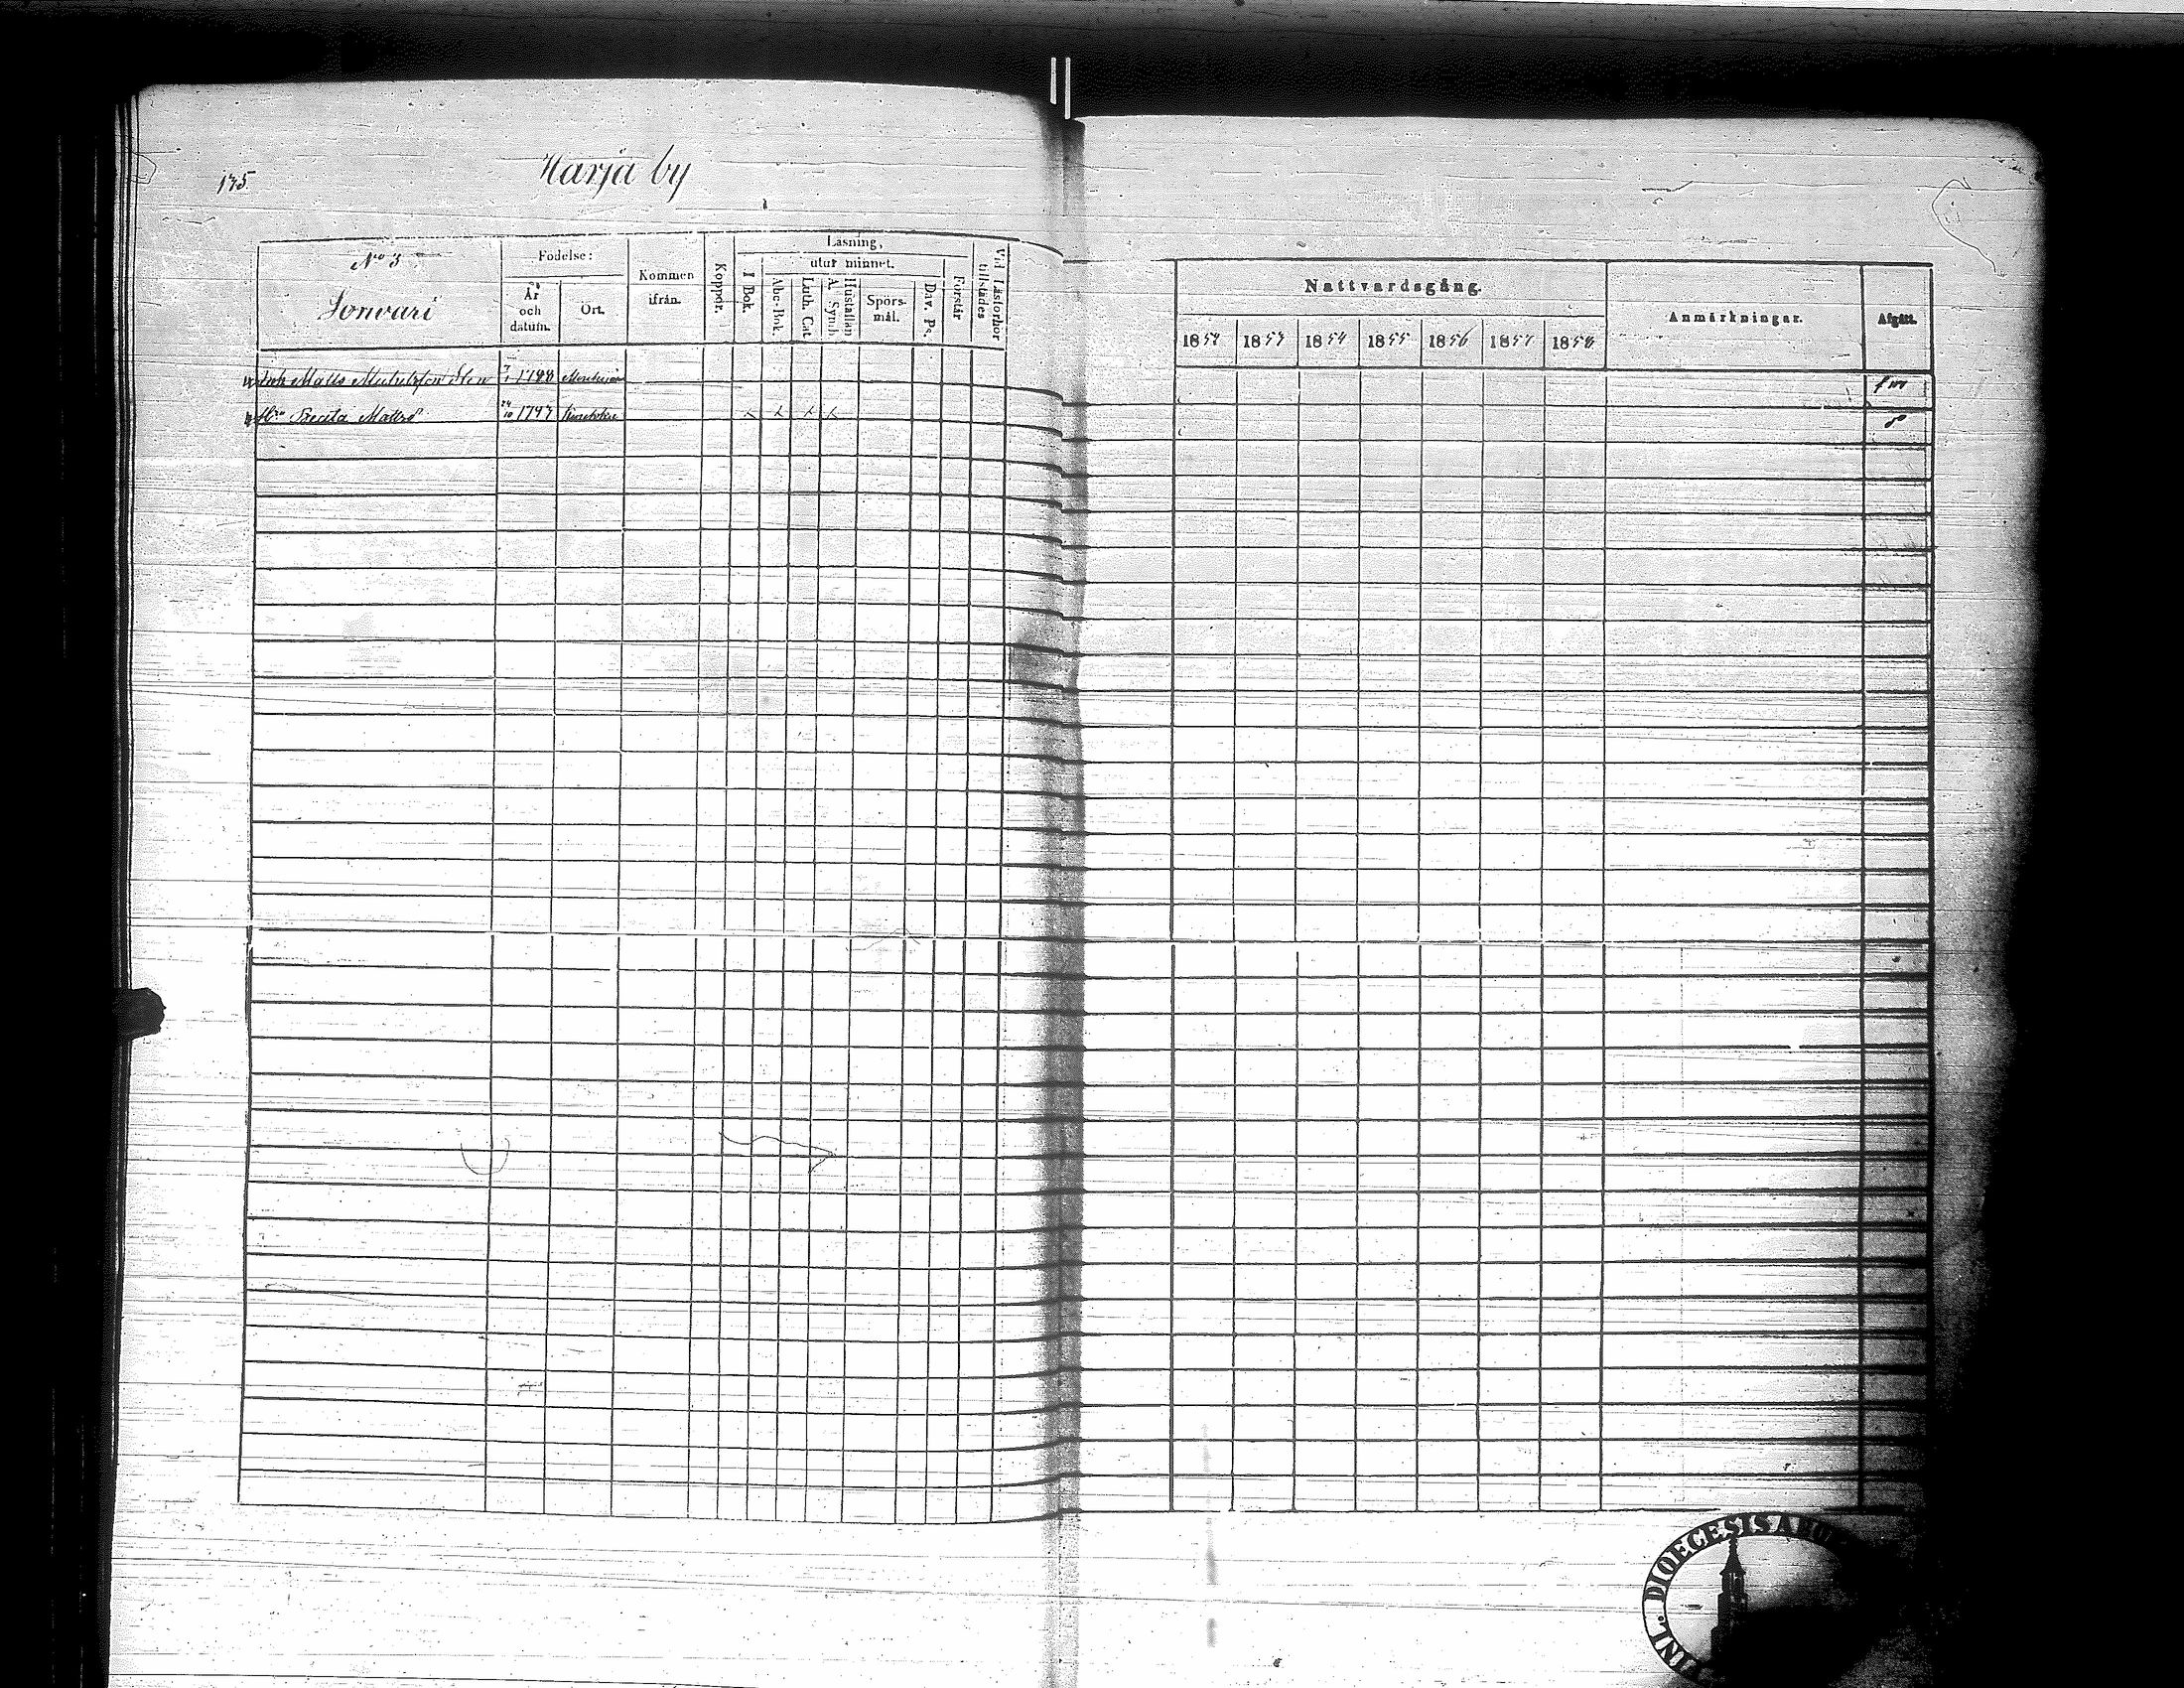 175.
Harja by
No 3
Sonvari
Födelse:
År
och
datum.
Ort.
Kommen
ifrån.
Koppor.
Läsning,
I Bok.
utur minnet.
Abc-Bok.
Luth. Cat.
Hustaflan
A. Symb.
Spörs-
mål.
Dav. Ps.
Förstår
Vid Läsförhör
tillstädes
Matts
7/1 1788
Hu Brita Mattsdr
24/10 1797
Nattvardsgång.
1852 1853 1854 1855 1856 1857 1858
Anmärkningar.
Afgått.
FINL. DIOECESIS ABO